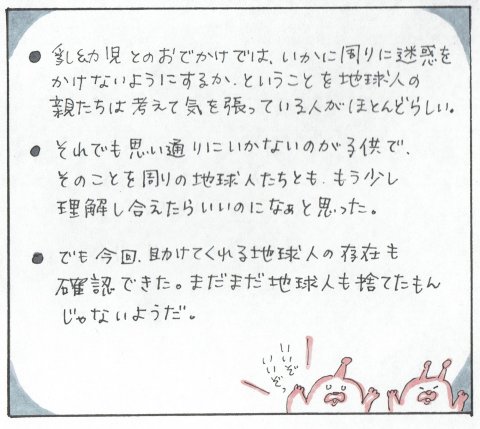 ● 乳幼児とのおでかけでは、いかに周りに迷惑を
かけないようにするか、ということを地球人の
親たちは考えて気を張っている人がほとんどらしい。
● それでも思い通りにいかないのが子供で、
そのことを周りの地球人たちとも、もう少し
理解し合えたらいいのになぁと思った。
● でも今回、助けてくれる地球人の存在も
確認できた。まだまだ地球人も捨てたもん
じゃないようだ。
いいぞ
いいぞっ